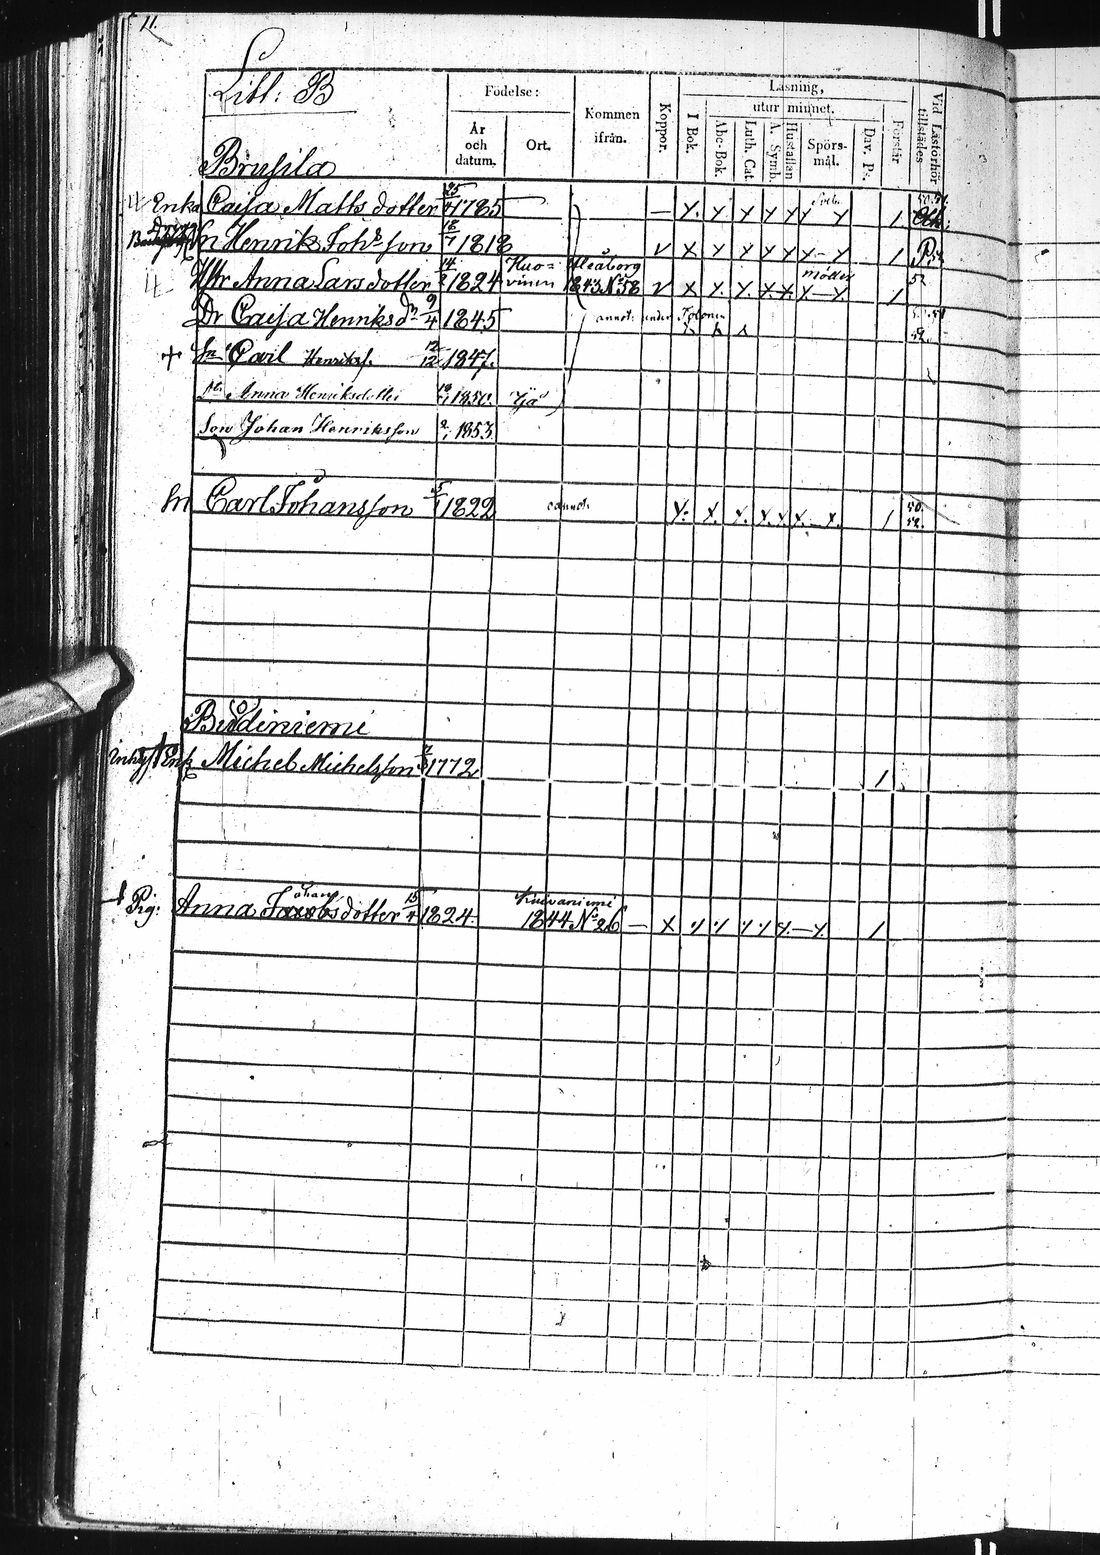 11.
Litt: B
Födelse: Läsning,
utur minnet.
År och datum. Ort. Kommen ifrån. Koppor. I Bok. Abc-Bok. Luth. Cat. A. Symb. Hustaflan Spörs-mål. Dav. Ps. Förstår. Vid Läsförhör tillstädes
Brusila
Enka Caisa Matts dotter 25 1785 — y. y y y y y y 1
Sn Henrik Joh:s son 18/7 1818 v x x y y y x - y 1
Hstr Anna Lars dotter 14 1824 Kuo=vinen Uleåborg 1843 No 58 v x y. y. x x x — y. 1 52
Dr Caisa Henriksdr 9/4 1845 annot: under
+ Sn Carl Henrikss. 12/12 1847.
Dr Anna Henriksdotter 1850. Ijå
Son Johan Henriksson 1853
Sn Carl Johansson 5 1822 annot. y. x. y. x. x x. — x. 1 50. 52.
Budiniemi
Enk Michel Michelsson 1772 1
Pig: Anna Johan Jacobsdotter 15/4 1824. Kuivaniemi 1844 No 26 — x y y y y y. — y. 1